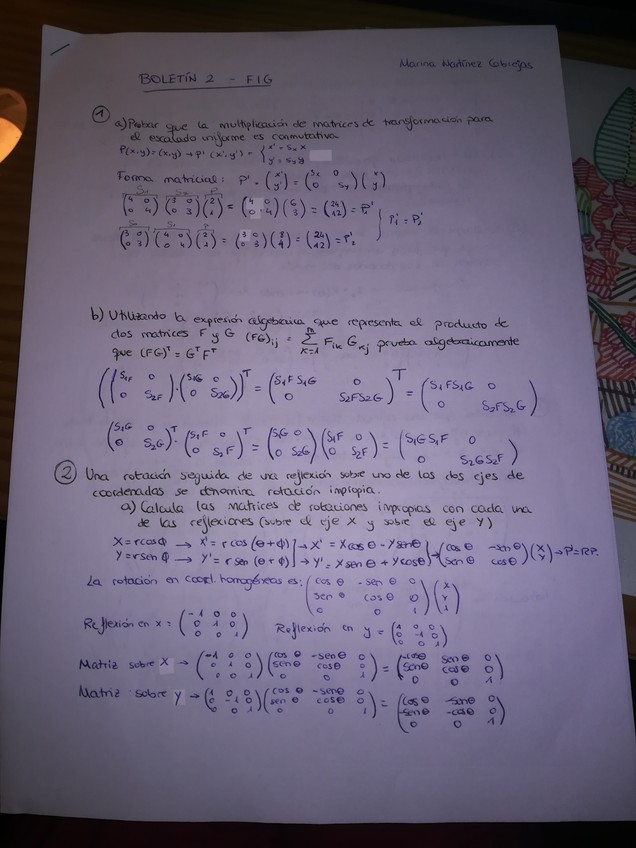 Marina Martínez Cabrejas
BOLETÍN 2 - FIG
① a) Probar que la multiplicación de matrices de transformación para
el escalado uniforme es conmutativa
P(x,y) = (x,y) → P' (x',y') = { x' = Sx x
y' = Sy y
Forma matricial: P' = (x' y') = (Sx 0 0 Sy) (x y)
(4 0 0 4) (3 0 0 3) (2 1) = (4 0 0 4) (6 3) = (24 12) = P1' } P1' = P2'
(3 0 0 3) (4 0 0 4) (2 1) = (3 0 0 3) (8 4) = (24 12) = P2'
b) Utilizando la expresión algebraica que representa el producto de
dos matrices F y G (FG)ij = Σ K=1 n Fik Gkj prueba algebraicamente
que (FG)ᵀ = Gᵀ Fᵀ
((S1F 0 0 S2F) · (S1G 0 0 S2G))ᵀ = (S1F S1G 0 0 S2F S2G)ᵀ = (S1F S1G 0 0 S2F S2G)
(S1G 0 0 S2G)ᵀ · (S1F 0 0 S2F)ᵀ = (S1G 0 0 S2G) (S1F 0 0 S2F) = (S1G S1F 0 0 S2G S2F)
② Una rotación seguida de una reflexión sobre uno de los dos ejes de
coordenadas se denomina rotación impropia.
a) Calcula las matrices de rotaciones impropias con cada una
de las reflexiones (sobre el eje X y sobre el eje Y)
X = r cos ϕ → X' = r cos (θ + ϕ) → X' = X cos θ - Y sen θ
Y = r sen ϕ → Y' = r sen (θ + ϕ) → Y' = X sen θ + Y cos θ → (cos θ -sen θ sen θ cos θ) (X Y) → P' = RP.
La rotación en coord. homogéneas es: (cos θ -sen θ 0 sen θ cos θ 0 0 0 1) (X Y 1)
Reflexión en x = (-1 0 0 0 1 0 0 0 1) Reflexión en y = (1 0 0 0 -1 0 0 0 1)
Matriz sobre X → (-1 0 0 0 1 0 0 0 1) (cos θ -sen θ 0 sen θ cos θ 0 0 0 1) = (-cos θ sen θ 0 sen θ cos θ 0 0 0 1)
Matriz sobre Y → (1 0 0 0 -1 0 0 0 1) (cos θ -sen θ 0 sen θ cos θ 0 0 0 1) = (cos θ -sen θ 0 -sen θ -cos θ 0 0 0 1)